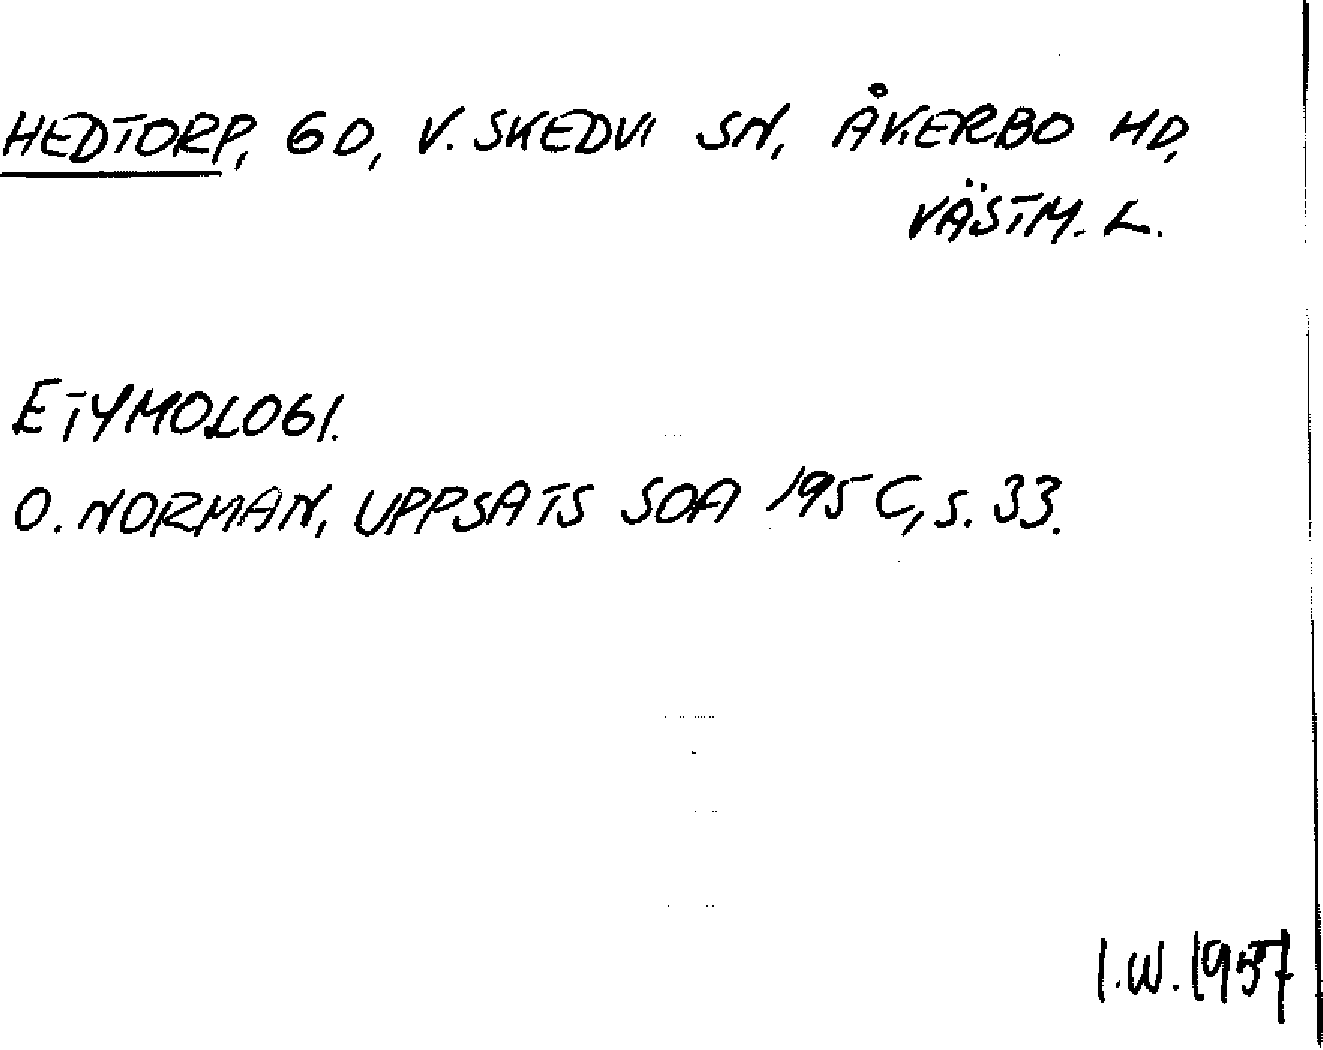 HEDTORP, GD, V. SKEDVI SN, ÅKERBO HD,
VÄSTM. L.
ETYMOLOGI.
O. NORMAN, UPPSATS SOA 195 C, s. 33.
I.W. 1957